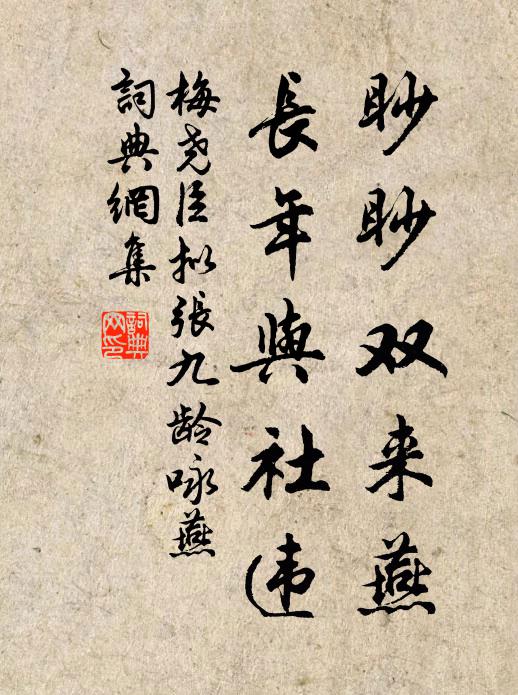 眇眇双来燕
長年與社违
梅尧臣拟張九龄咏燕
詞典網集
詞典
网印